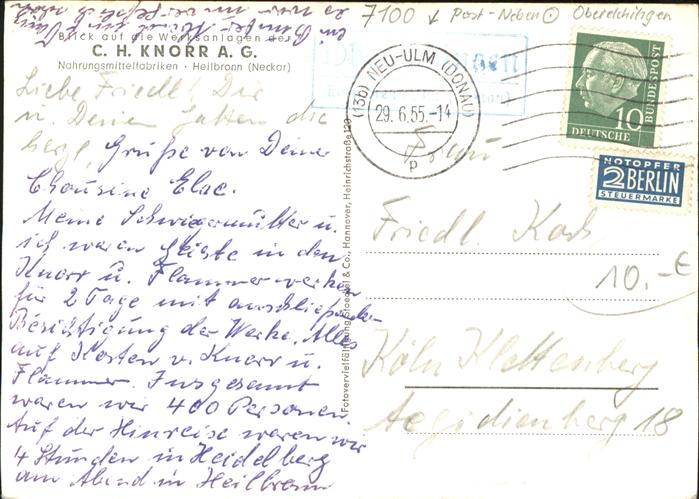 7100 ↓ Post-Neben ⊙ Oberelchingen
Blick auf die Werksanlagen der
C. H. KNORR A. G.
Nahrungsmittelfabriken · Heilbronn (Neckar)
Liebe Friedl! Dir
u. Deinem Gatten die
herzl. Grüße von Deiner
Chousine Else.
Meine Schwiegermutter u.
ich waren Gäste in den
Knorr u. Flammerwerken
für 2 Tage mit anschließender
Besichtigung der Werke. Alles
auf Kosten v. Knorr u.
Flammer. Insgesamt
waren wir 400 Personen.
Auf der Hinreise waren wir
4 Stunden in Heidelberg
am Abend in Heilbronn
Fotovervielfältigung Stoedtel & Co., Hannover, Heinrichstraße
(13b) NEU-ULM (DONAU)
29.6.55.-14
p
10
DEUTSCHE
BUNDESPOST
NOTOPFER
2 BERLIN
STEUERMARKE
Frau
Friedl.
10.-€
Köln Klettenberg
Aegidienberg 18